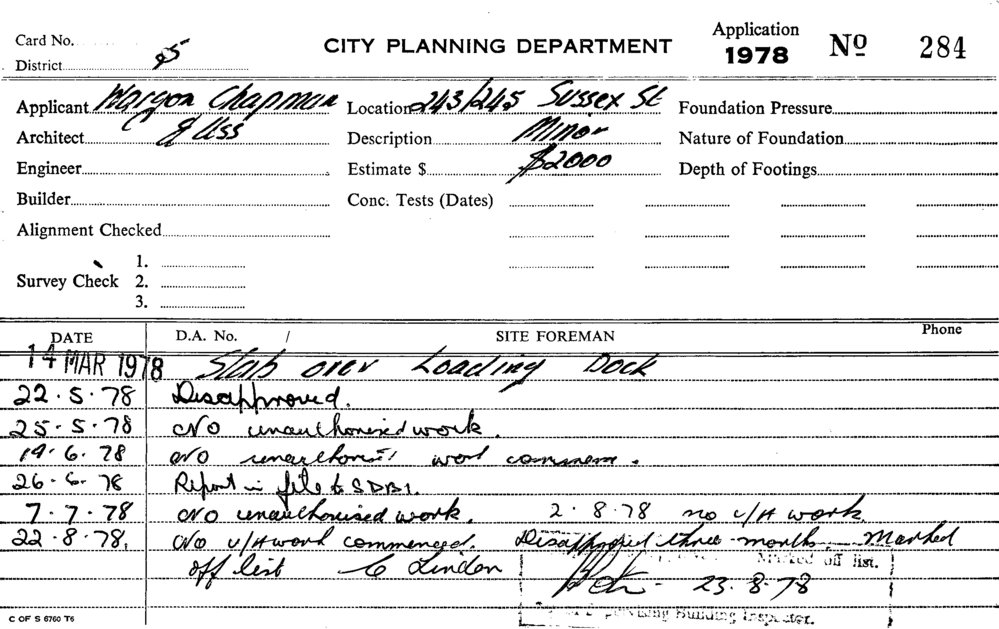 Card No.
CITY PLANNING DEPARTMENT
Application
1978 Nº 284
District 5
Applicant Wargon Chapman Location 243/245 Sussex St Foundation Pressure
Architect & Ass Description Minor Nature of Foundation
Engineer Estimate $ $2000 Depth of Footings
Builder Conc. Tests (Dates)
Alignment Checked
1.
Survey Check 2.
3.
DATE D.A. No. / SITE FOREMAN Phone
14 MAR 1978 Slab over Loading Dock
22.5.78 Disapproved.
25.5.78 NO unauthorised work.
19.6.78 NO work
26.6.78 Report in file to SDB1.
7.7.78 NO unauthorised work. 2.8.78 no U/A work
22.8.78, No U/A work commenced. Disapproved three months. Marked
off list C Lindon Marked off list.
23.8.78
Supervising Building Inspector.
C OF S 6760 T6